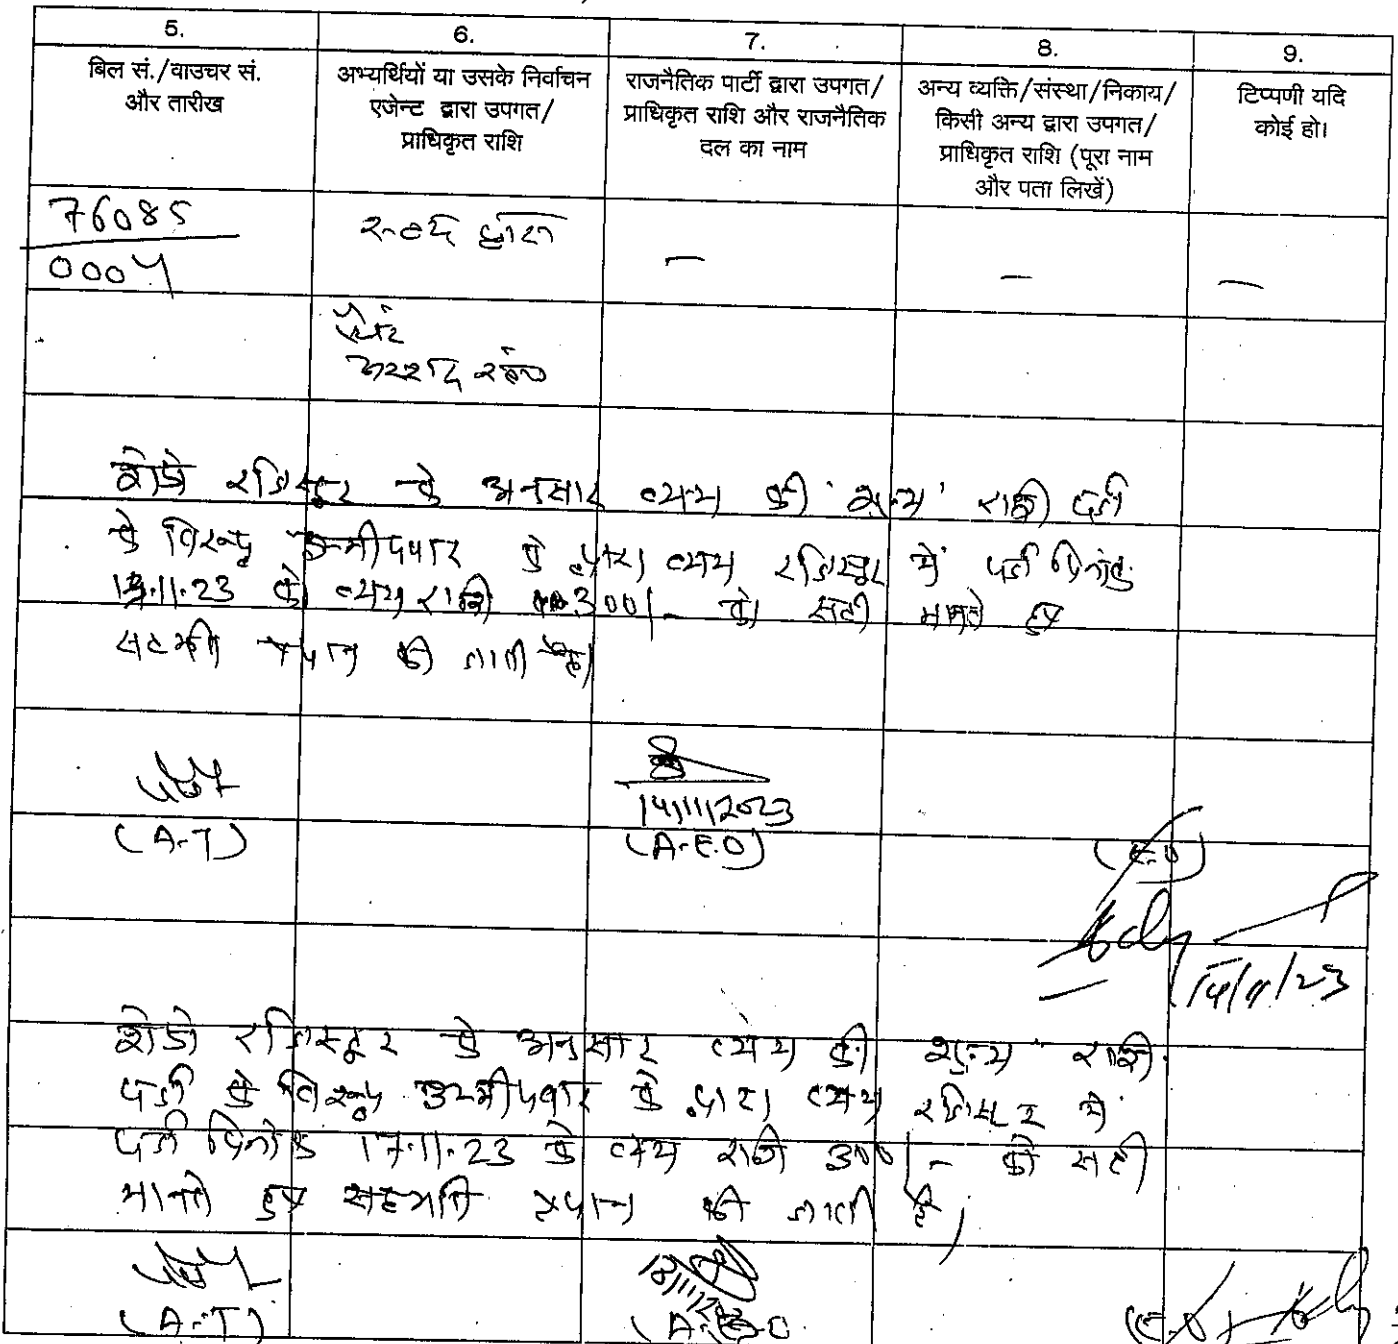 5. 6. 7. 8. 9.
बिल सं./वाउचर सं.
और तारीख
अभ्यर्थियों या उसके निर्वाचन
एजेन्ट द्वारा उपगत/
प्राधिकृत राशि
राजनैतिक पार्टी द्वारा उपगत/
प्राधिकृत राशि और राजनैतिक
दल का नाम
अन्य व्यक्ति/संस्था/निकाय/
किसी अन्य द्वारा उपगत/
प्राधिकृत राशि (पूरा नाम
और पता लिखें)
टिप्पणी यदि
कोई हो।
76085 द्वारा — — —
0004
शेडो रजिस्टर के अनुसार व्यय की 'शून्य' राशी दर्ज
के विरूद्ध उम्मीदवार के द्वारा व्यय रजिस्टर में दर्ज दिनांक
11.23 को व्यय राशि 300/- को सही मानते हुए
सहमति प्रदान की जाती है।
14/11/2023
(A-T) (A-E.O) (E.O)
14/11/23
शेडो रजिस्टर के अनुसार व्यय की शून्य राशि
दर्ज के विरूद्ध उम्मीदवार के द्वारा व्यय रजिस्टर में
दर्ज दिनांक 17.11.23 के व्यय राशि 300/- को सही
मानते हुए सहमति प्रदान की जाती है,
(A-T)